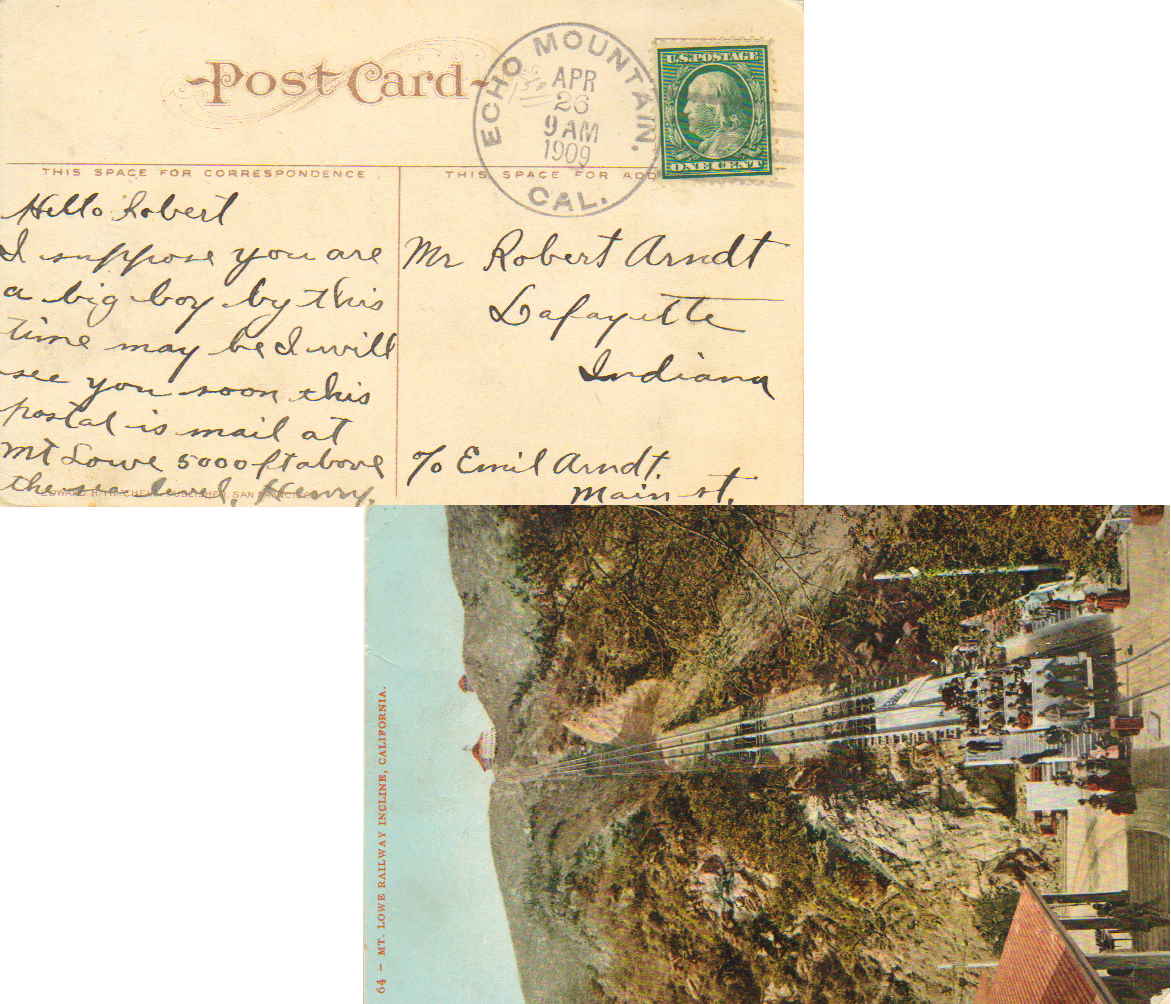 Post Card
ECHO MOUNTAIN.
APR
26
9 AM
1909
CAL.
U.S. POSTAGE
ONE CENT
THIS SPACE FOR CORRESPONDENCE
THIS SPACE FOR ADD
Hello Robert
I suppose you are
a big boy by this
time may be I will
see you soon this
postal is mail at
Mt Lowe 5000 ft above
the sea level. Henry.
Mr Robert Arndt
Lafayette
Indiana
c/o Emil Arndt.
Main st.
PUBLISHER, SAN
64 – MT. LOWE RAILWAY INCLINE, CALIFORNIA.